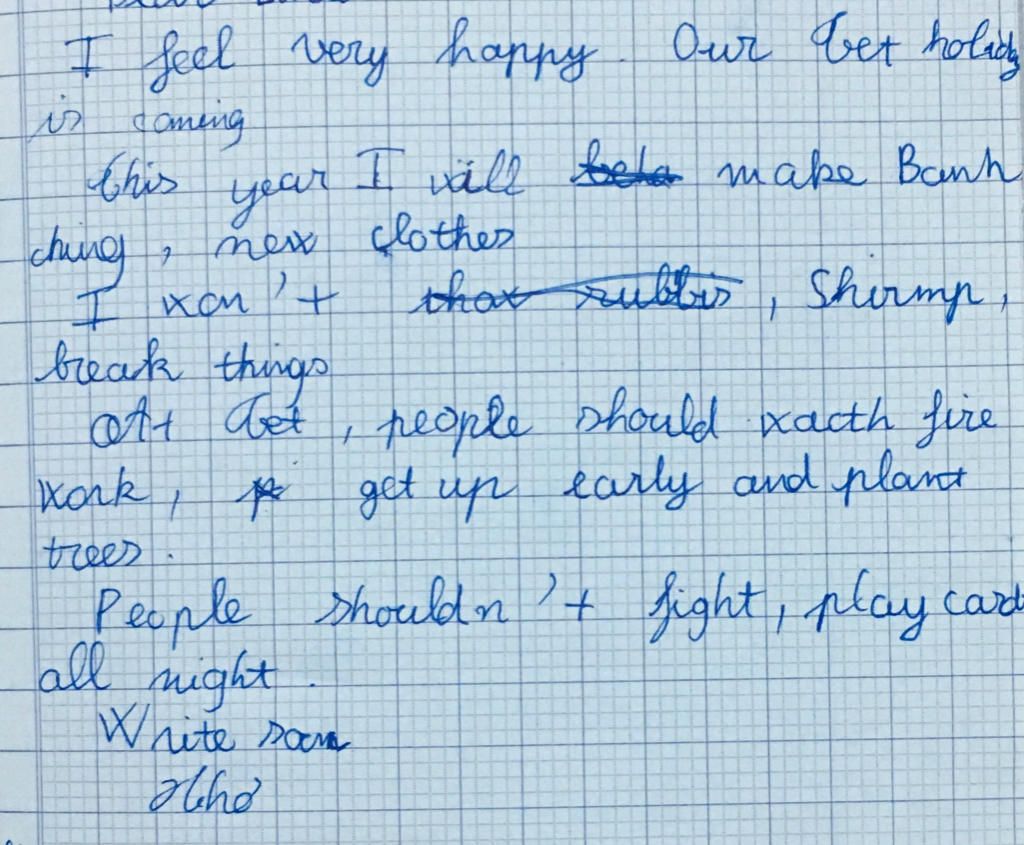 I feel very happy. Our Tet holiday
is coming
this year I will make Banh
chung, new clothes
I won't , Shirmp,
break things
At Tet, people should wacth fire
work, get up early and plant
trees.
People shouldn't fight, play card
all night.
Write soon